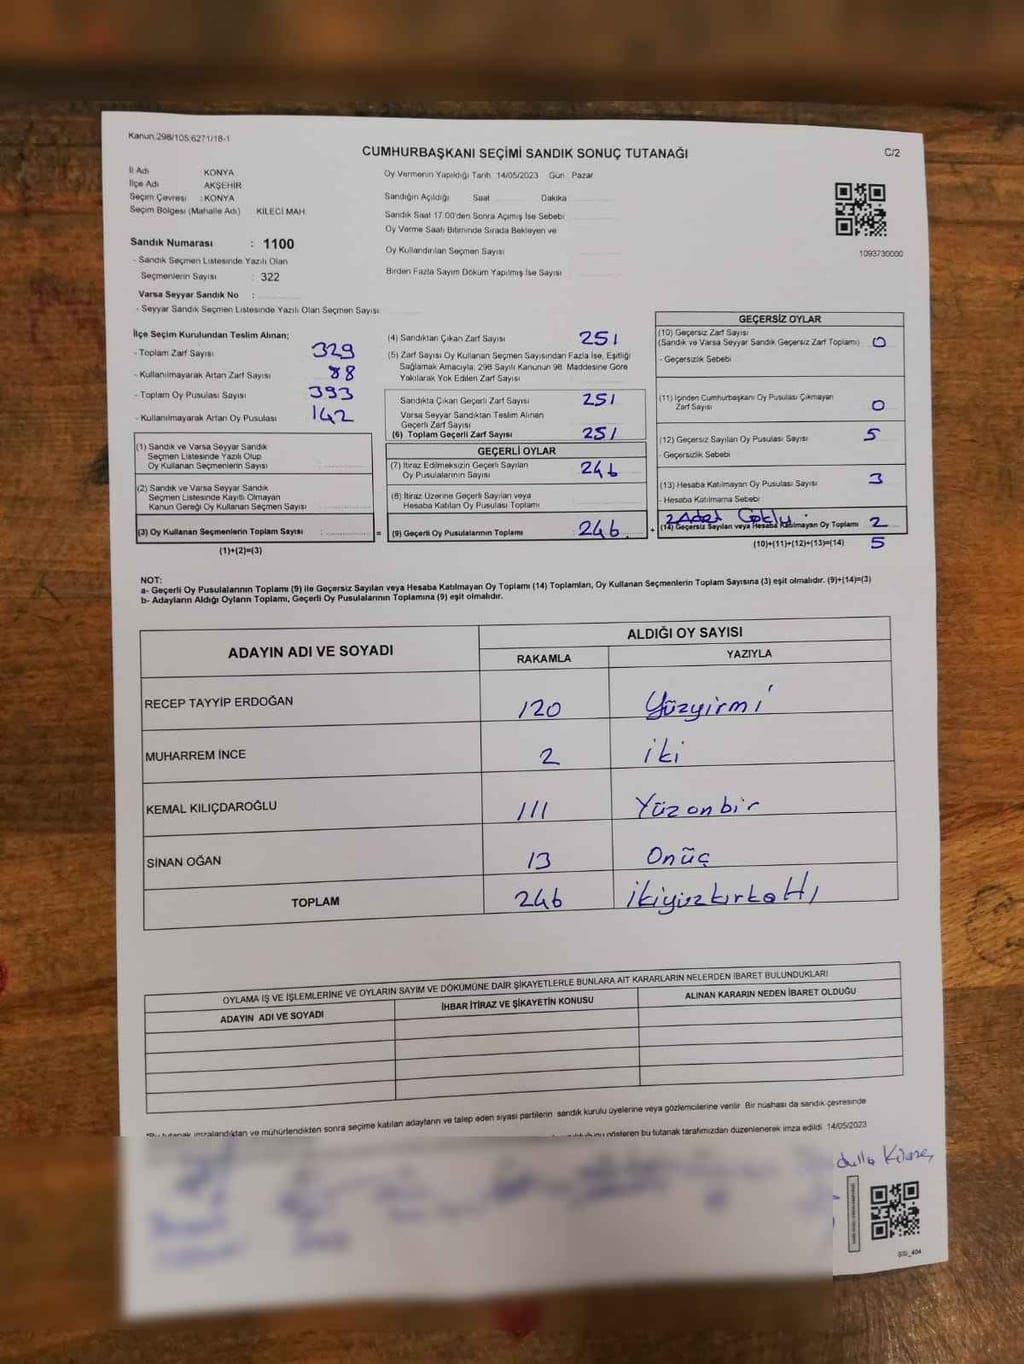 Kanun.298/105.6271/18-1
CUMHURBAŞKANI SEÇİMİ SANDIK SONUÇ TUTANAĞI
C/2
İl Adı KONYA
İlçe Adı AKŞEHİR
Seçim Çevresi : KONYA
Seçim Bölgesi (Mahalle Adı) KİLECİ MAH
Sandık Numarası : 1100
- Sandık Seçmen Listesinde Yazılı Olan
Seçmenlerin Sayısı : 322
Varsa Seyyar Sandık No :
- Seyyar Sandık Seçmen Listesinde Yazılı Olan Seçmen Sayısı
Oy Vermenin Yapıldığı Tarih 14/05/2023 Gün : Pazar
Sandığın Açıldığı Saat Dakika
Sandık Saat 17.00'den Sonra Açımış İse Sebebi
Oy Verme Saati Bitiminde Sırada Bekleyen ve
Oy Kullandırılan Seçmen Sayısı
Birden Fazla Sayım Döküm Yapılmış İse Sayısı
1093730000
İlçe Seçim Kurulundan Teslim Alınan;
- Toplam Zarf Sayısı 329
- Kullanılmayarak Artan Zarf Sayısı 88
- Toplam Oy Pusulası Sayısı 393
- Kullanılmayarak Artan Oy Pusulası 142
(1) Sandık ve Varsa Seyyar Sandık
Seçmen Listesinde Yazılı Olup
Oy Kullanan Seçmenlerin Sayısı
(2) Sandık ve Varsa Seyyar Sandık
Seçmen Listesinde Kayıtlı Olmayan
Kanun Gereği Oy Kullanan Seçmen Sayısı
(3) Oy Kullanan Seçmenlerin Toplam Sayısı =
(1)+(2)=(3)
(4) Sandıktan Çıkan Zarf Sayısı 251
(5) Zarf Sayısı Oy Kullanan Seçmen Sayısından Fazla İse, Eşitliği
Sağlamak Amacıyla, 298 Sayılı Kanunun 98. Maddesine Göre
Yakılarak Yok Edilen Zarf Sayısı
Sandıkta Çıkan Geçerli Zarf Sayısı 251
Varsa Seyyar Sandıktan Teslim Alınan
Geçerli Zarf Sayısı
(6) Toplam Geçerli Zarf Sayısı 251
GEÇERLİ OYLAR
(7) İtiraz Edilmeksizin Geçerli Sayılan
Oy Pusulalarının Sayısı 246
(8) İtiraz Üzerine Geçerli Sayılan veya
Hesaba Katılan Oy Pusulası Toplamı
(9) Geçerli Oy Pusulalarının Toplamı 246 +
GEÇERSİZ OYLAR
(10) Geçersiz Zarf Sayısı
(Sandık ve Varsa Seyyar Sandık Geçersiz Zarf Toplamı) 0
- Geçersizlik Sebebi
(11) İçinden Cumhurbaşkanı Oy Pusulası Çıkmayan
Zarf Sayısı 0
(12) Geçersiz Sayılan Oy Pusulası Sayısı 5
- Geçersizlik Sebebi
(13) Hesaba Katılmayan Oy Pusulası Sayısı 3
- Hesaba Katılmama Sebebi
2 Adet Çoklu
(14) Geçersiz Sayılan veya Hesaba Katılmayan Oy Toplamı 2
(10)+(11)+(12)+(13)=(14) 5
NOT:
a- Geçerli Oy Pusulalarının Toplamı (9) ile Geçersiz Sayılan veya Hesaba Katılmayan Oy Toplamı (14) Toplamları, Oy Kullanan Seçmenlerin Toplam Sayısına (3) eşit olmalıdır. (9)+(14)=(3)
b- Adayların Aldığı Oyların Toplamı, Geçerli Oy Pusulalarının Toplamına (9) eşit olmalıdır.
ADAYIN ADI VE SOYADI
ALDIĞI OY SAYISI
RAKAMLA YAZIYLA
RECEP TAYYİP ERDOĞAN 120 Yüzyirmi
MUHARREM İNCE 2 iki
KEMAL KILIÇDAROĞLU 111 Yüzonbir
SİNAN OĞAN 13 Onüç
TOPLAM 246 ikiyüzkırkaltı
OYLAMA İŞ VE İŞLEMLERİNE VE OYLARIN SAYIM VE DÖKÜMÜNE DAİR ŞİKAYETLERLE BUNLARA AİT KARARLARIN NELERDEN İBARET BULUNDUKLARI
ADAYIN ADI VE SOYADI İHBAR İTİRAZ VE ŞİKAYETİN KONUSU ALINAN KARARIN NEDEN İBARET OLDUĞU
tutanak imzalandıktan ve mühürlendikten sonra seçime katılan adayların ve talep eden siyasi partilerin sandık kurulu üyelerine veya gözlemcilerine verilir. Bir nüshası da sandık çevresinde
gösteren bu tutanak tarafımızdan düzenlenerek imza edildi. 14/05/2023